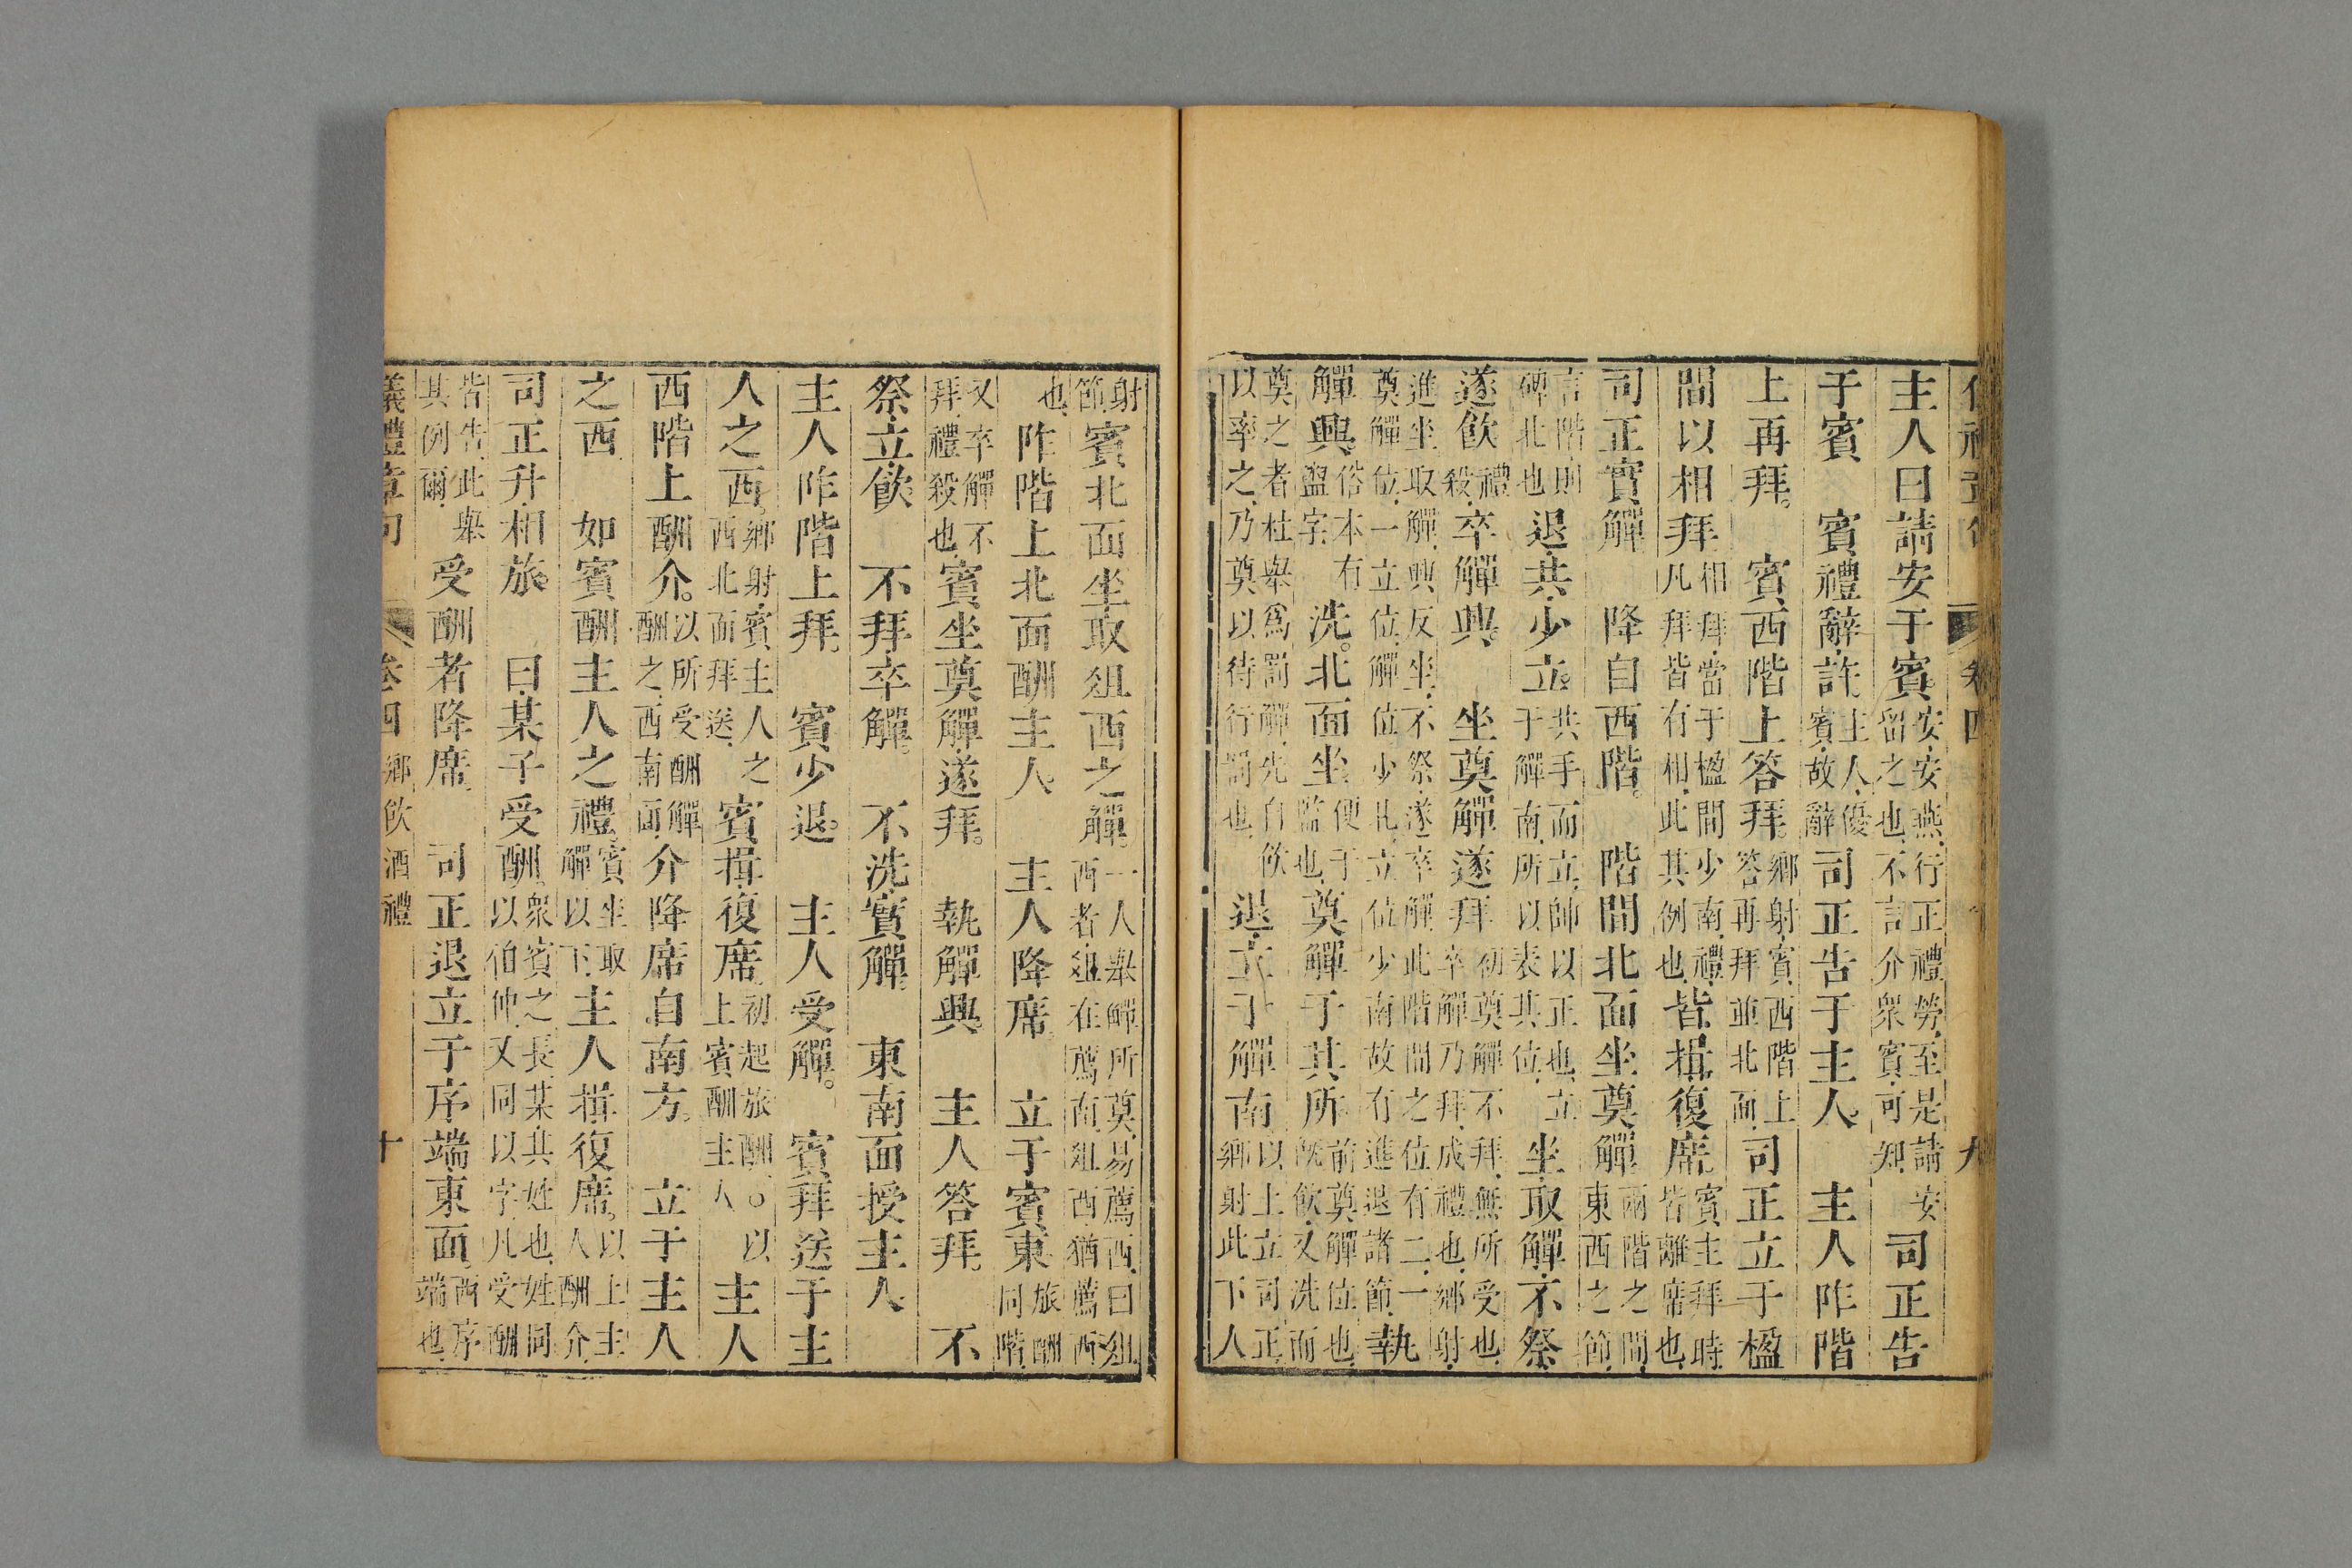 卷四 九
主人曰請安于賓安安燕行正禮勞至是請安留之也不言介衆賓可知司正告
于賓 賓禮辭許主人優賓故辭司正告于主人 主人阼階
上再拜。 賓西階上答拜。鄉射賓西階上答再拜並北面司正立于楹
間以相拜相拜當于楹間少南禮凡拜皆有相此其例也皆揖復席賓主拜時皆離席也
司正實觶 降自西階。 階間北面坐奠觶兩階之間東西之節
言階則碑北也退共少立共手而立帥以正也立于觶南所以表其位坐取觶不祭
遂飲禮殺卒觶興 坐奠觶遂拜初奠觶不拜無所受也卒觶乃拜成禮也鄉射
進坐取觶興反坐不祭遂卒觶此階間之位有二一奠觶位一立位觶位少北立位少南故有進退諸節執
觶興俗本有盥字洗。北面坐便于監也奠觶于其所前奠觶位也既飲又洗而
奠之者杜舉爲罰觶先自飲以率之乃奠以待行罰也退立于觶南以上立司正鄉射此下人
射節賓北面坐取俎西之觶。一人舉觶所奠易薦西曰俎西者俎在薦南俎西猶薦西
也阼階上北面酬主人 主人降席 立于賓東旅酬同階
又卒觶不拜禮殺也賓坐奠觶遂拜。 執觶興 主人答拜 不
祭立飲 不拜卒觶。 不洗實觶 東南面授主人
主人阼階上拜。 賓少退。 主人受觶。 賓拜送于主
人之西。鄉射賓主人之西北面拜送賓揖復席初起旅酬。以上賓酬主人主人
西階上酬介。以所受酬觶酬之西南面介降席自南方 立于主人
之西 如賓酬主人之禮賓坐取觶以下主人揖復席。以上主人酬介
司正升相旅 曰某子受酬衆賓之長某其姓也姓同以伯仲又同以字凡受酬
皆告此舉其例爾受酬者降席 司正退立于序端東面西序端也
儀禮章句 卷四 鄉飲酒禮 十